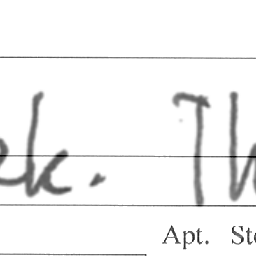 ek. Th
Apt. Ste